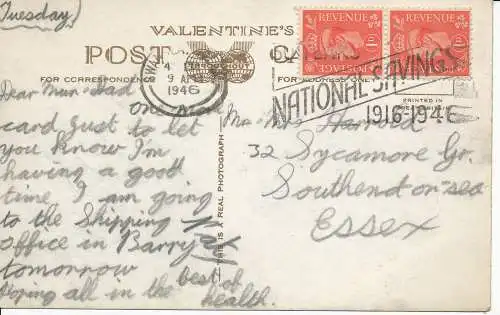 (Tuesday)
VALENTINE'S
POST
FOR CORRESPONDENCE
FOR ADDRESS ONLY
REVENUE
REVENUE
POSTAGE
4
9 A
1946
NATIONAL SAVINGS
1916-1946
PRINTED IN
THIS IS A REAL PHOTOGRAPH
Dear Mum & Dad
card Just to let
you know I'm
having a good
time I am going
to the Shipping
office in Barry
tomorrow
Hoping all in the best of
health.
32 Sycamore Gr.
Southend-on-sea
Essex